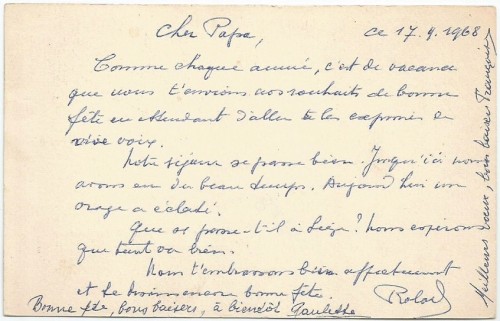 Cher Papa,
ce 17.9.1968
Comme chaque année, c'est de vacances
que nous t'envoyons nos souhaits de bonne
fête en attendant d'aller te les exprimer de
vive voix.
Notre séjour se passe bien. Jusqu'ici nous
avons eu du beau temps. Aujourd'hui un
orage a éclaté.
Que se passe-t'il à Liège? Nous espérons
que tout va bien.
Nous t'embrassons bien affectueusement
et te souhaitons encore bonne fête.
Roland
Bonne fête, bons baisers, à bientôt Paulette
Meilleurs vœux, bons baisers François